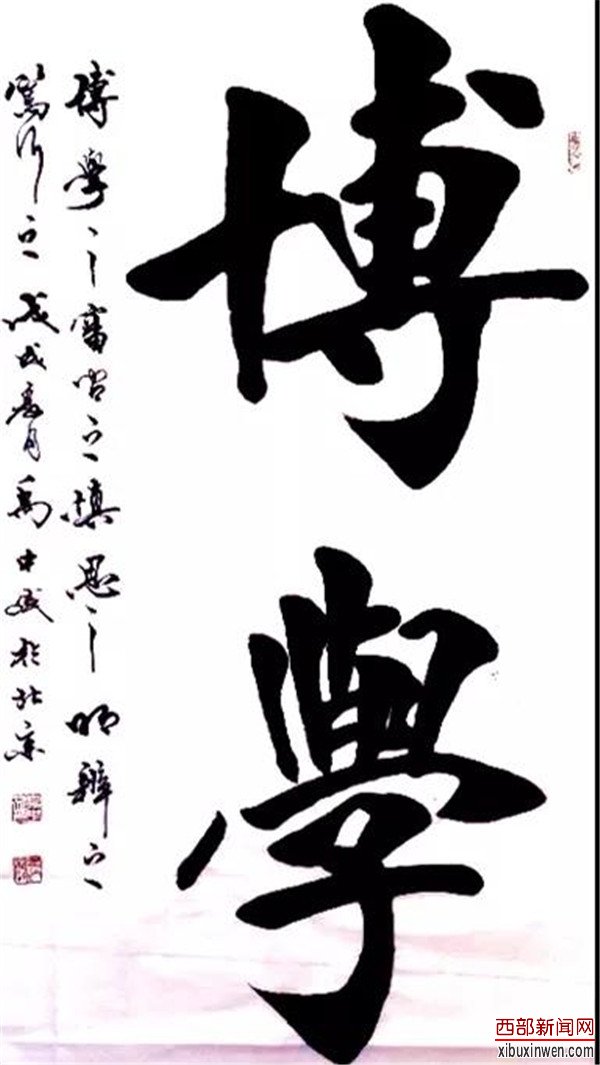 博學
博學之審問之慎思之明辨之
篤行之戊戌月禹中於北京
西部新闻网
xibuxinwen.com